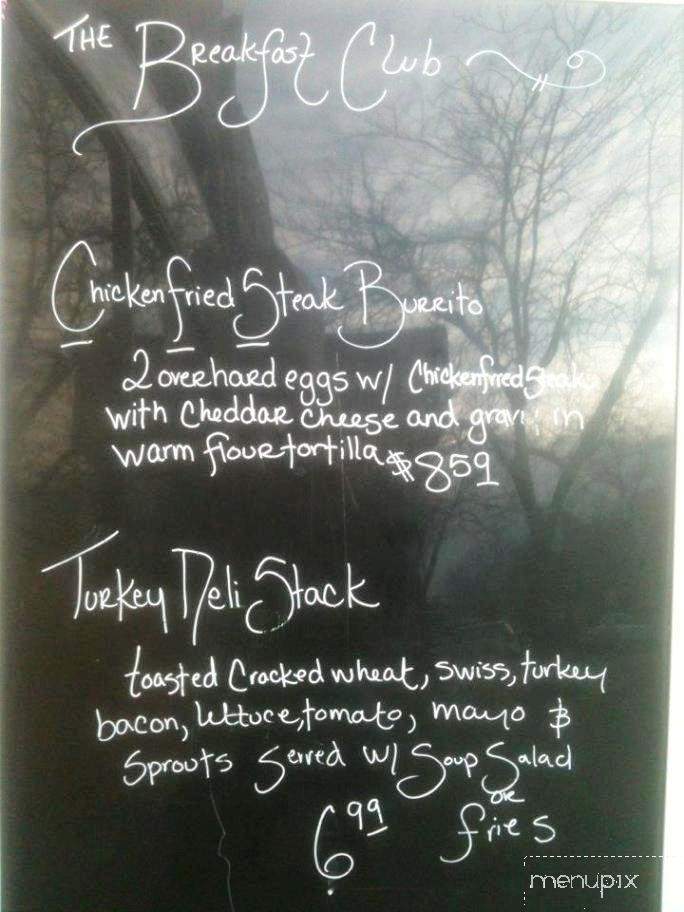 THE Breakfast Club
Chicken fried Steak Burrito
2 overhard eggs w/ Chickenfried Steak
with Cheddar Cheese and gravy in
warm flour tortilla $859
Turkey Deli Stack
toasted Cracked wheat, swiss, turkey
bacon, lettuce, tomato, mayo &
Sprouts Served w/ Soup Salad
or
6.99 fries
menupix